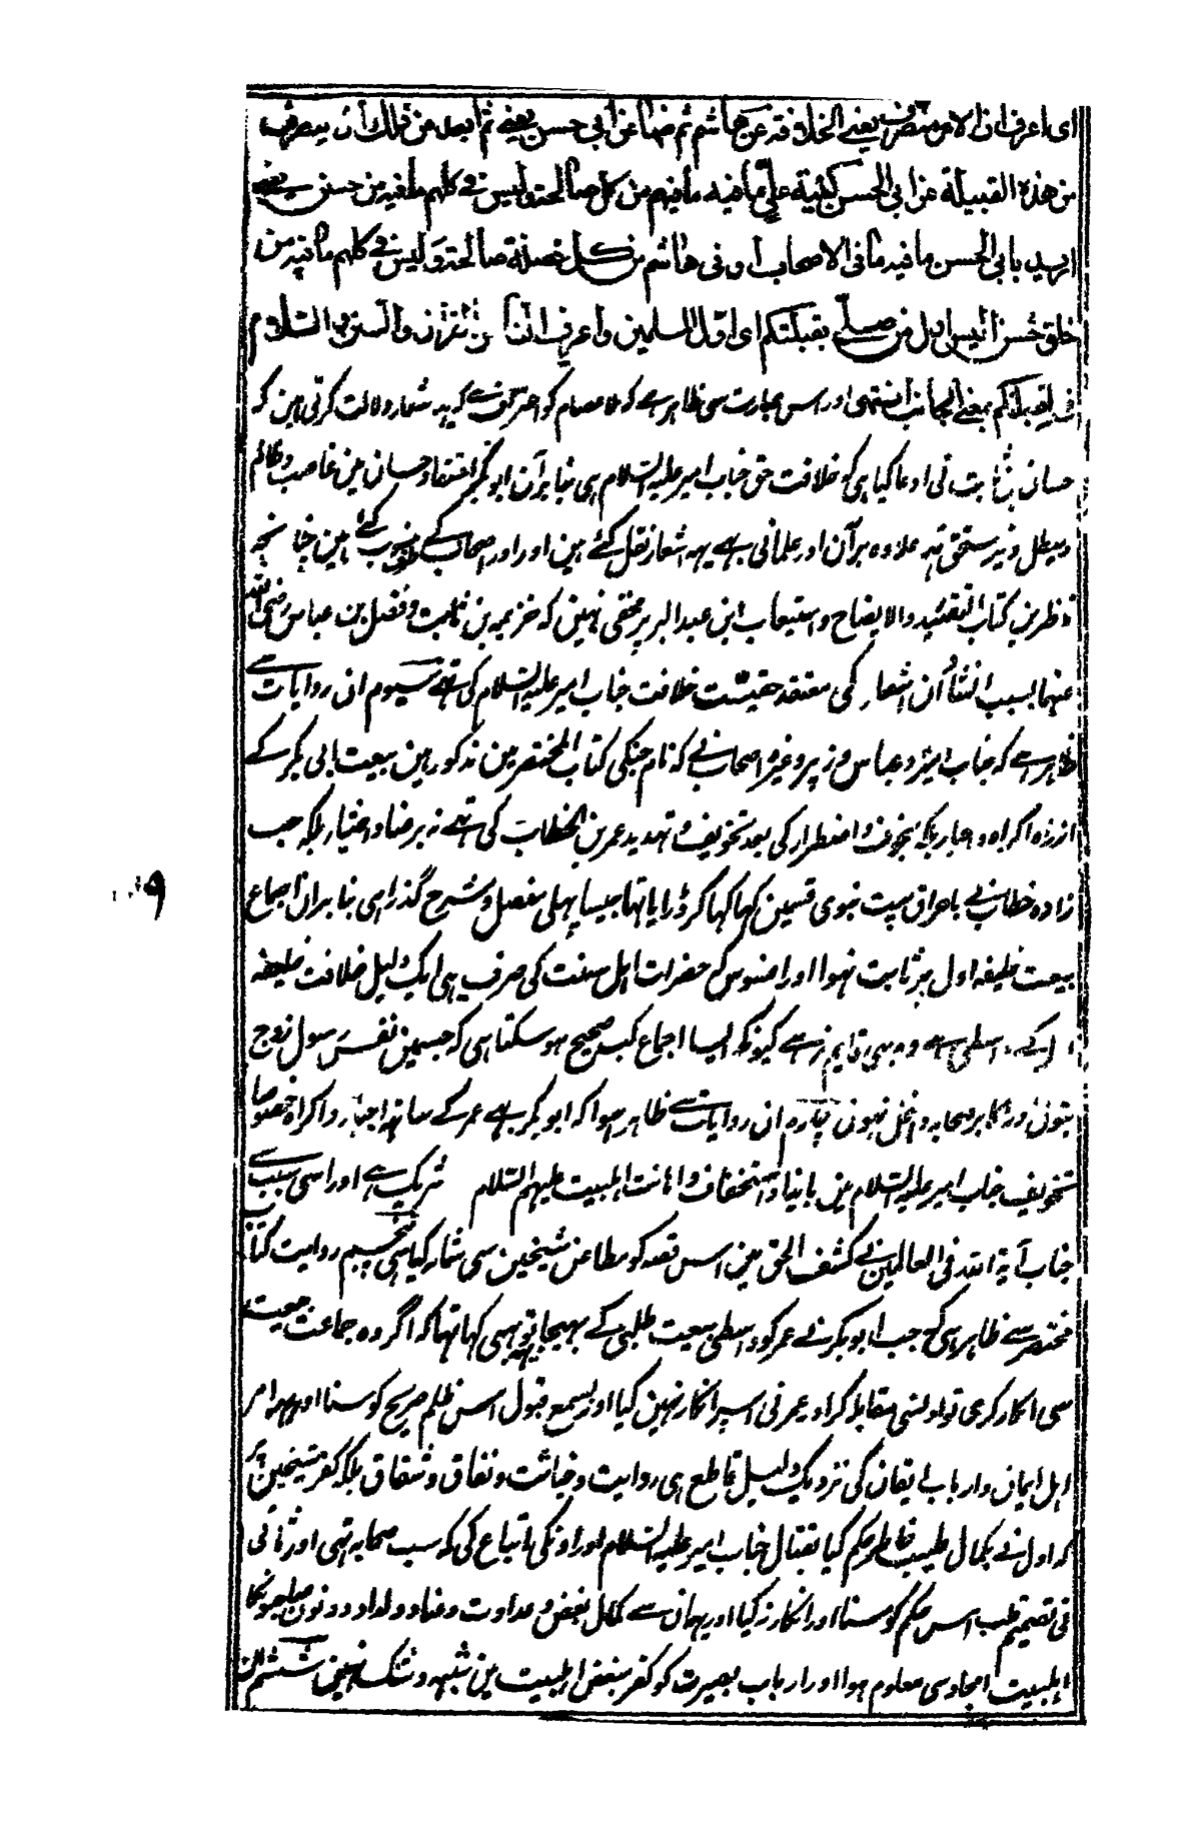 ای ما اعرف ان الامر منصرف یعنی الخلافة عن هاشم ثم منها عن ابی حسن یعنی ثم ابعد من ذلك ان ینصرف
من هذه القبیلة عن ابی الحسن کنیة علی ما فیه ما فیهم من کل صالحة ولیس فی کلهم ما فیه من حسن یعنی
ارید بابی الحسن ما فیه ما فی الاصحاب او فی هاشم من کل خصلة صالحة ولیس فی کلهم ما فیه من
خلق حسن الیس اول من صلی بقبلتکم ای اول المسلمین واعرف الناس بالقران والسنن والسلام
فی لقبلتکم بمعنی الجانب انتهی اور اس عبارت سی ظاهر ہے کہ ملا عصام کو اعتراف ہے کہ یہ اشعار دلالت کرتی ہین کہ
حسان بن ثابت نی ادعا کیا ہی کہ خلافت حق جناب امیر علیہ السلام ہی بنا برآن ابو بکر اعتقاد حسان مین غاصب و ظالم
و مبطل و غیر مستحق تہ علاوہ برآن اور علمانی بہے یہہ اشعار نقل کئے ہین اور اور اصحاب کے طرف منسوب کئے ہین چنانچہ
ناظرین کتاب التقئید والایضاح و استیعاب ابن عبد البر پر مخفی نہین کہ خزیمہ بن ثابت و فضل بن عباس رضی اللہ
عنہما بسبب انشأ ان اشعار کی معتقد حقیّت خلافت جناب امیر علیہ السلام کی تہے سیوم ان روایات سے
ظاہر ہے کہ جناب امیر و عباس و زبیر و غیرہ اصحاب نے کہ نام جنکی کتاب المختصر مین مذکور ہین بیعت ابی بکر کے
از راہ اکراہ و اجبار بلکہ بخوف و اضطرار کی بعد تخویف و تہدید عمر بن الخطاب کی تہے نہ برضا و اختیار بلکہ جب
زادہ خطاب نے باحراق بیت نبوی قسمین کہا کہا کر ڈرایا تہا جیسا پہلی مفصل و مشرح گذرا ہی بنا بران اجماع
بیعت خلیفہ اول پر ثابت نہوا اور افسوس کہ حضرات اہل سنت کی صرف یہی ایک دلیل خلافت خلیفہ
اسطی ہے وہ بہی قایم نہ رہے کیونکہ ایسا اجماع کب صحیح ہو سکتا ہی کہ جسمین نفس رسول زوج
بتول اور اکابر صحابہ داخل نہون چہارم ان روایات سے ظاہر ہوا کہ ابو بکر بہے عمر کے ساتہ اجبار و اکراہ خصوصا
تخویف جناب امیر علیہ السلام مین بایذا و استخفاف و اہانت اہلبیت علیہم السلام شریک ہے اور اسی سبب سے
جناب آیة اللہ فی العالمین نے کشف الحق مین اس قصہ کو مطاعن شیخین سی شمار کیا ہی پنجم روایت کتاب
مختصر سے ظاہر ہی کہ جب ابو بکر نے عمر کو واسطی بیعت طلبی کے بہیجا تو یہہ بہی کہا تہا کہ اگر وہ جماعت بیعت
سی انکار کری تو اونسی مقابلہ کر اور عمر نی اسپر انکار نہین کیا اور بسمع قبول اس ظلم صریح کو سنا اور یہہ امر
اہل ایمان و ارباب ایقان کی نزدیک دلیل قاطع ہی روایت و خباثت و نفاق و شقاق بلکہ کفر شیخین پر
کہ اول نے بکمال طیب خاطر حکم کیا بقتال جناب امیر علیہ السلام اور اونکی اتباع کی کہ سب صحابہ تہی اور ثانی
نی تصمیم قلب اس حکم کو سنا اور انکار نہ کیا اور یہان سے کمال بغض و عداوت و عناد و لداد دونون صاحبونکا
اہلبیت امجاد سی معلوم ہوا اور ارباب بصیرت کو کفر مبغض اہلبیت مین شبہہ و شک نہین ششم ان